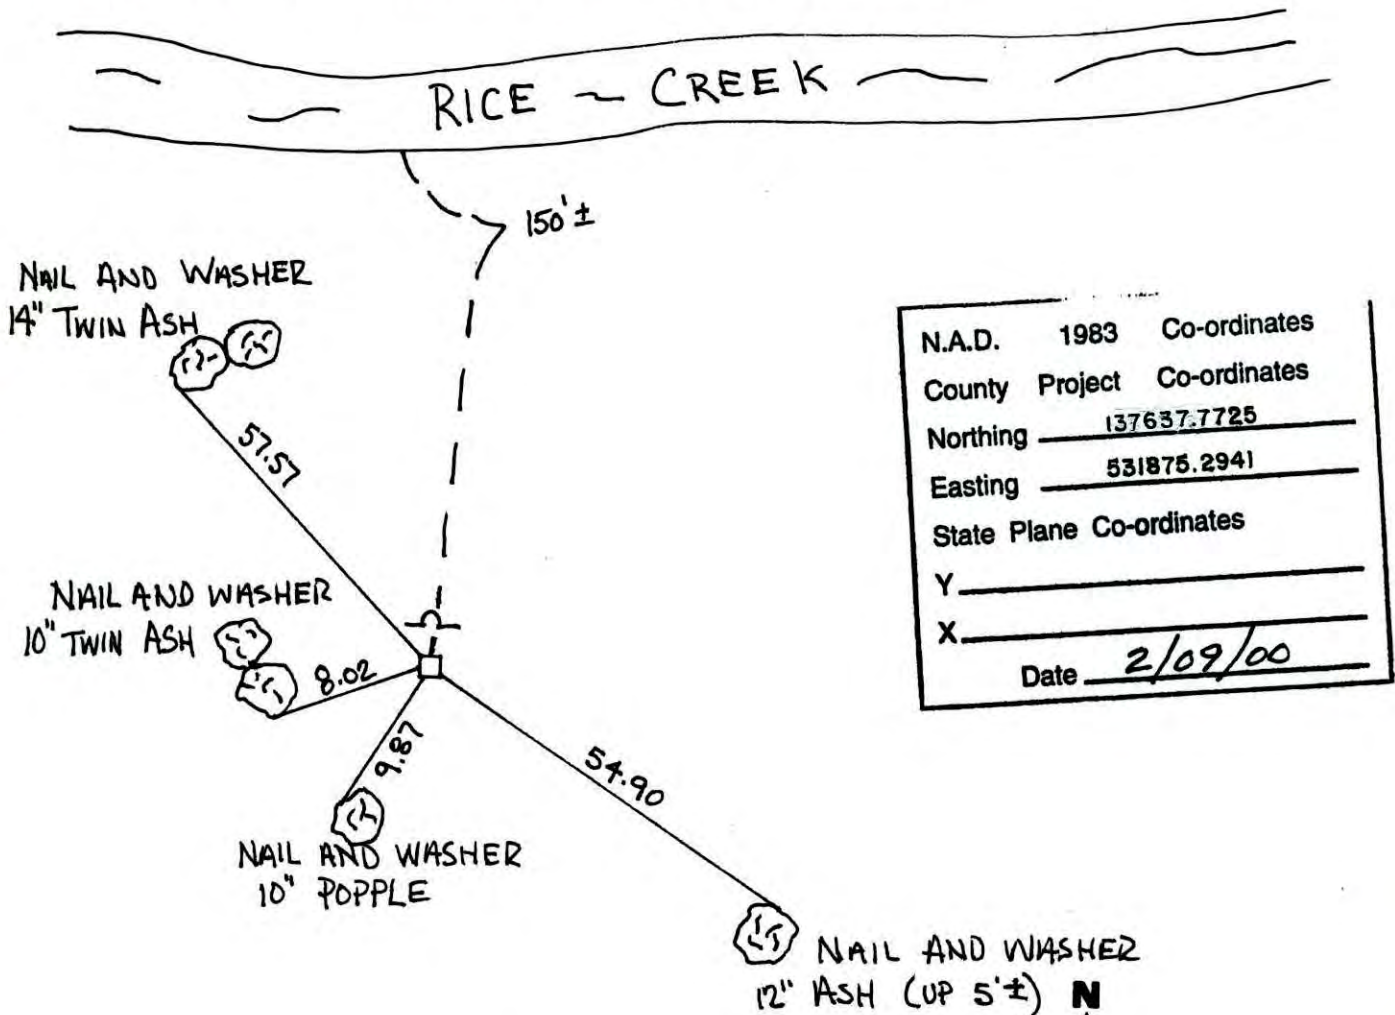 RICE ~ CREEK
150'±
NAIL AND WASHER
14" TWIN ASH
57.57
NAIL AND WASHER
10" TWIN ASH
8.02
9.87
54.90
NAIL AND WASHER
10" POPPLE
NAIL AND WASHER
12" ASH (UP 5'±)
N
N.A.D. 1983 Co-ordinates
County Project Co-ordinates
Northing 137637.7725
Easting 531875.2941
State Plane Co-ordinates
Y
X
Date 2/09/00